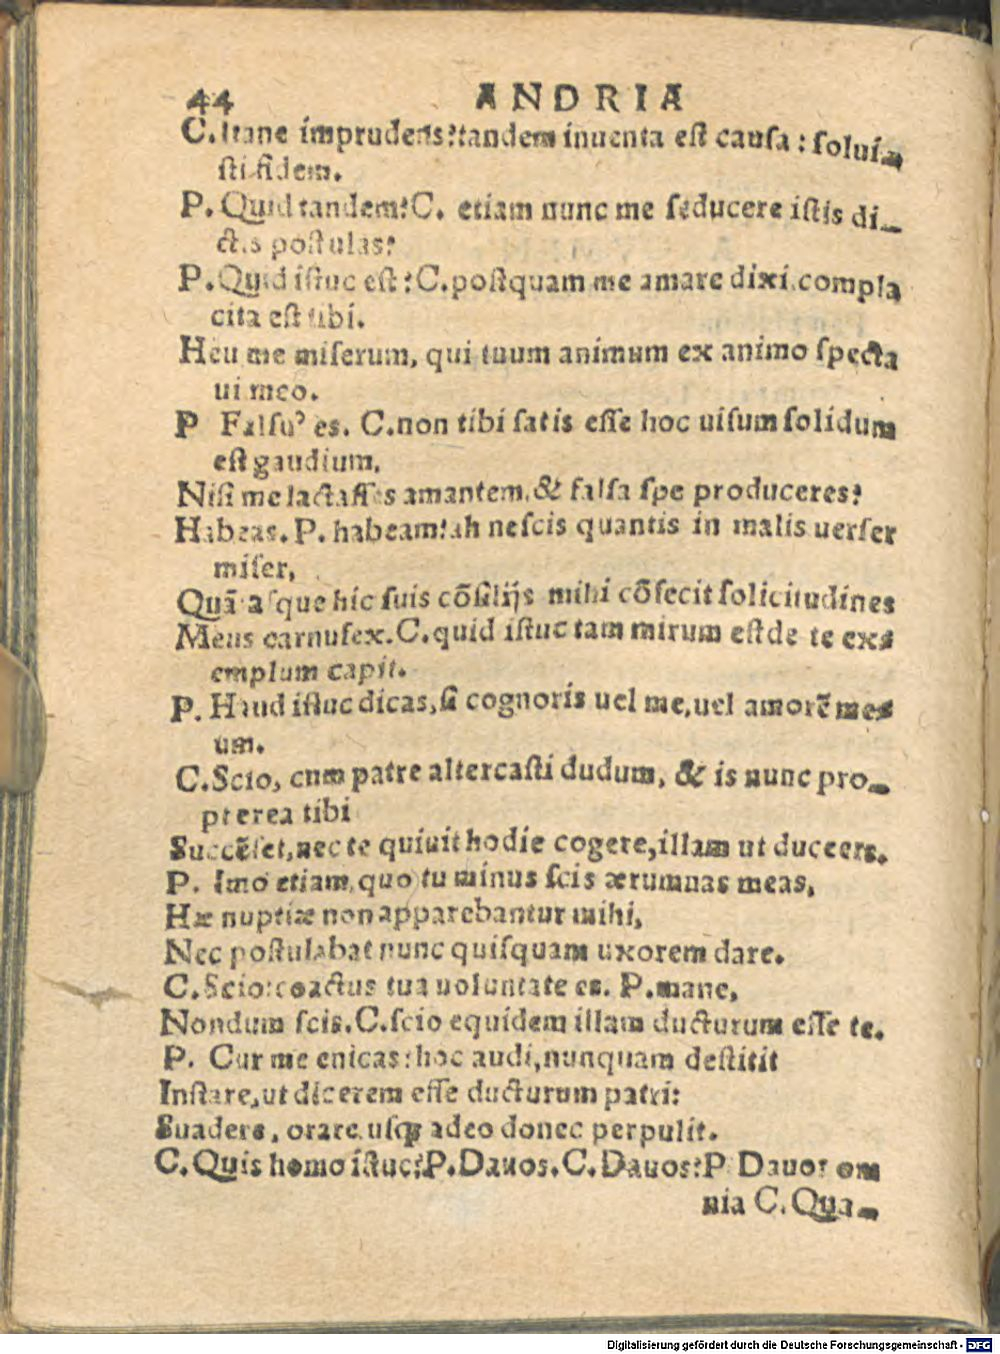 44 ANDRIA
C. Itane imprudẽs? tandem inuenta est causa: solui-
sti fidem.
P. Quid tandem? C. etiam nunc me seducere istis di-
ctis postulas?
P. Quid istuc est? C. postquam me amare dixi, compla
cita est tibi.
Heu me miserum, qui tuum animum ex animo specta
ui meo.
P Falsuꝰ es. C. non tibi satis esse hoc uisum solidum
est gaudium,
Nisi me lactasses amantem, & falsa spe produceres?
Habeas. P. habeam? ah nescis quantis in malis uerser
miser,
Quã asque hic suis cõsilijs mihi cõfecit solicitudines
Meus carnufex. C. quid istuc tam mirum est de te ex-
emplum capit.
P. Haud istuc dicas, si cognoris uel me, uel amorẽ me-
um.
C. Scio, cnm patre altercasti dudum, & is nunc pro-
pterea tibi
Succẽset, nec te quiuit hodie cogere, illam ut duceers.
P. Imo etiam, quo tu minus scis ærumnas meas,
Hæ nuptiæ non apparebantur mihi,
Nec postulabat nunc quisquam uxorem dare.
C. Scio: coactus tua uoluntate es. P. mane,
Nondum scis. C. scio equidem illam ducturum esse te.
P. Cur me enicas? hoc audi, nunquam destitit
Instare, ut dicerem esse ducturum patri:
Suadere, orare, usqꝫ adeo donec perpulit.
C. Quis homo istuc? P. Dauos. C. Dauos? P Dauos om
nia C. Qua-
Digitalisierung gefördert durch die Deutsche Forschungsgemeinschaft - DFG